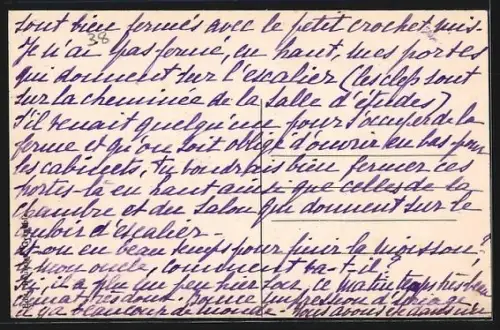 sont bien fermés avec le petit crochet mis.
38
Je n'ai pas fermé, en haut, mes portes
qui donnent sur l'escalier (les clefs sont
sur la cheminée de la salle d'études)
S'il venait quelqu'un pour s'occuper de la
ferme et qu'on soit obligé d'ouvrir en bas pour
les cabinets, tu voudrais bien fermer ces
portes-là en haut ainsi que celles de la
chambre et du salon qui donnent sur le
d'escalier -
et-on eu beau temps pour finir la moisson?
mon oncle, comment va-t-il?
il a plu un peu hier soir, ce matin temps très beau
Bonne impression
il y a beaucoup de monde. Nous avons